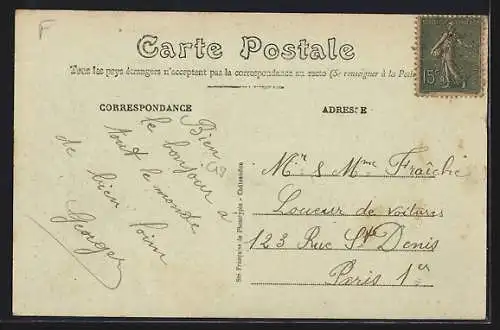 F
Carte Postale
Tous les pays étrangers n'acceptent pas la correspondance au recto (Se renseigner à la Poste
CORRESPONDANCE
ADRESSE
15c
Bien
le bonjour à
tout le monde
de bien loin
Georges
Mr & Mme Fraîché
Loueur de voitures
123 Rue St Denis
Paris 1er
Sté Française de Phototypie - Châteaudun